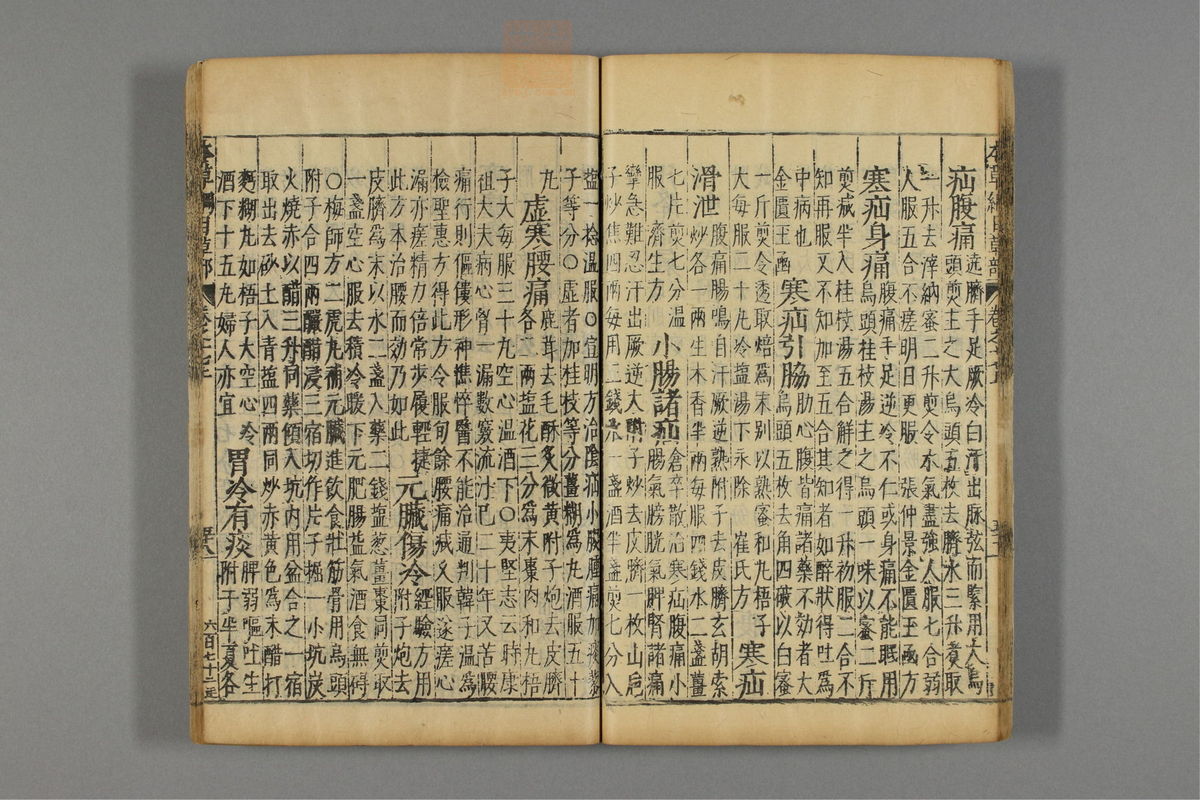 本草綱目草部 卷之十七
疝腹痛
遶臍手足厥冷白汗出脉弦而緊用大烏
頭煎主之大烏頭五枚去臍水三升煮取
一升去滓納蜜二升煎令水氣盡強人服七合弱
人服五合不瘥明日更服 張仲景金匱玉函方
寒疝身痛
腹痛手足逆冷不仁或身痛不能眠用
烏頭桂枝湯主之烏頭一味以蜜二斤
煎減半入桂枝湯五合解之得一升初服二合不
知再服又不知加至五合其知者如醉狀得吐爲
中病也
金匱玉函
寒疝引脇
肋心腹皆痛諸藥不効者大
烏頭五枚去角四破以白蜜
一斤煎令透取焙爲末別以熟蜜和丸梧子
大每服二十丸冷塩湯下永除 崔氏方
寒疝
滑泄
腹痛腸鳴自汗厥逆熟附子去皮臍玄胡索
炒各一兩生木香半兩每服四錢水二盞薑
七片煎七分温
服 濟生方
小腸諸疝
倉卒散治寒疝腹痛小
腸氣膀胱氣脾腎諸痛
攣急難忍汗出厥逆大附子炒去皮臍一枚山巵
子炒焦四兩每用二錢水一盞酒半盞煎七分入
塩一捻温服○宣明方治陰疝小腹腫痛加蒺藜
子等分○虛者加桂枝等分薑糊爲丸酒服五十
丸
虛寒腰痛
鹿茸去毛酥炙微黄附子炮去皮臍
各二兩塩花三分爲末棗肉和丸梧
子大每服三十丸空心温酒下○夷堅志云時康
祖大夫病心胷一漏數竅流汁已二十年又苦腰
痛行則傴僂形神憔悴醫不能治通判韓子温爲
檢聖惠方得此方令服旬餘腰痛減久服遂瘥心
漏亦瘥精力倍常步履輕捷
此方本治腰而効乃如此
元臟傷冷
經驗方用
附子炮去
皮臍爲末以水二盞入藥二錢塩葱薑棗同煎取
一盞空心服去積冷暖下元肥腸益氣酒食無碍
○梅師方二虎丸補元臟進飲食壯筋骨用烏頭
附子合四兩釅醋浸三宿切作片子掘一小坑炭
火燒赤以醋三升同藥傾入坑内用盆合之一宿
取出去砂土入青塩四兩同炒赤黄色爲末醋打
麪糊丸如梧子大空心冷
酒下十五丸婦人亦宜
胃冷有痰
脾弱嘔吐生
附子半夏各
本草綱目草部 卷之十七